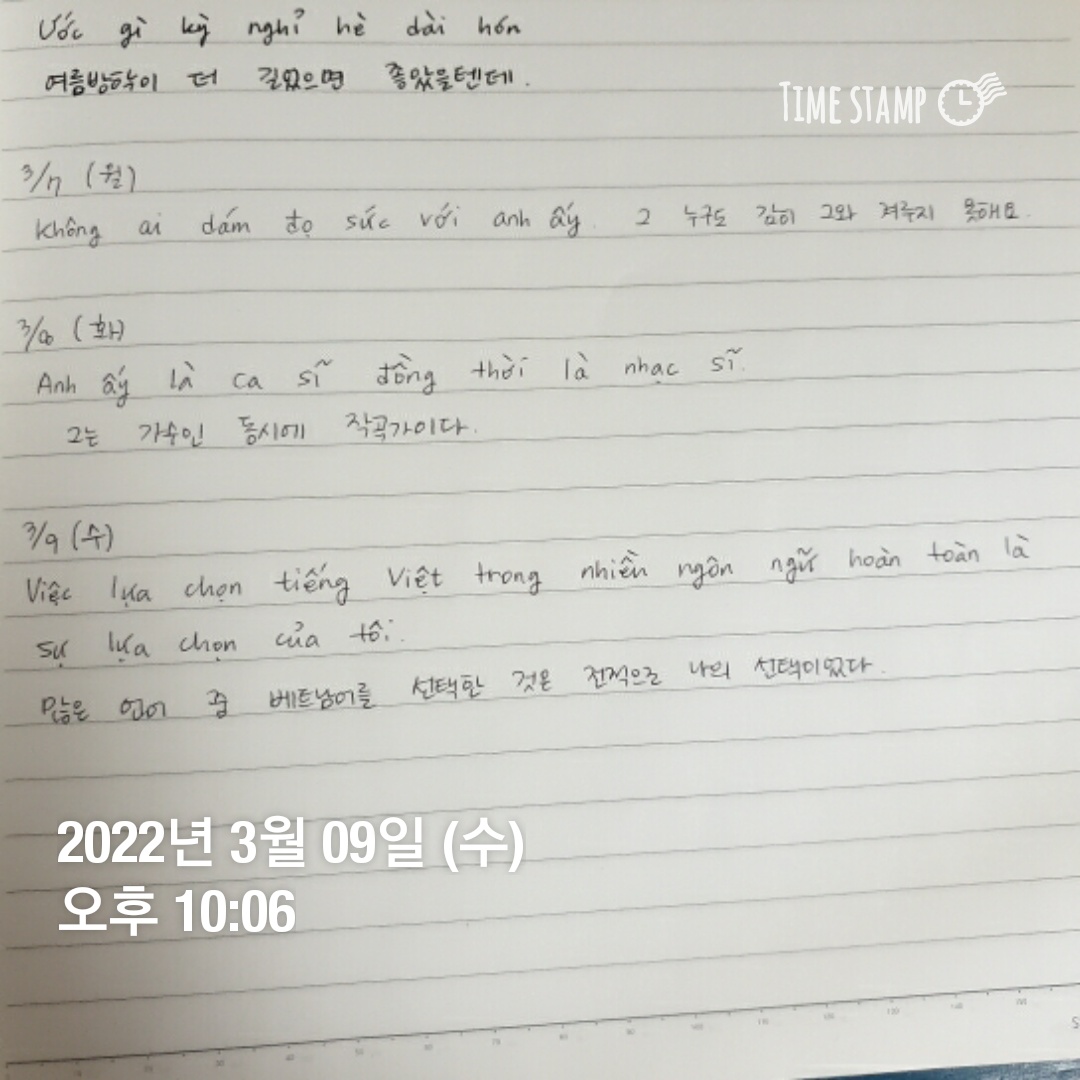 Ước gì kỳ nghỉ hè dài hơn
여름방학이 더 길었으면 좋았을텐데.
TIME STAMP
3/7 (월)
Không ai dám đọ sức với anh ấy. 그 누구도 감히 그와 겨루지 못해요.
3/8 (화)
Anh ấy là ca sĩ đồng thời là nhạc sĩ.
그는 가수인 동시에 작곡가이다.
3/9 (수)
Việc lựa chọn tiếng Việt trong nhiền ngôn ngữ hoàn toàn là
sự lựa chọn của tôi.
많은 언어 중 베트남어를 선택한 것은 전적으로 나의 선택이었다.
2022년 3월 09일 (수)
오후 10:06